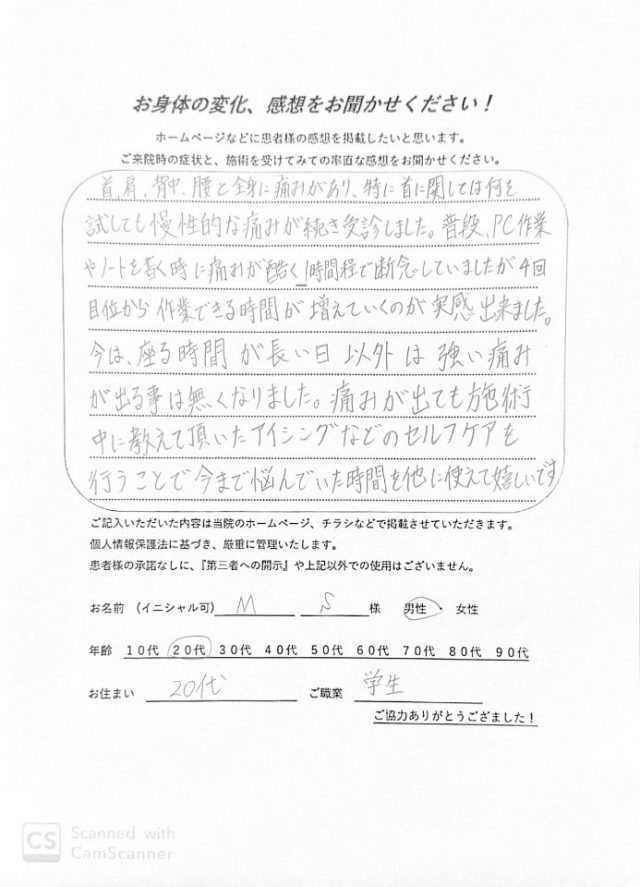 お身体の変化、感想をお聞かせください！
ホームページなどに患者様の感想を掲載したいと思います。
ご来院時の症状と、施術を受けてみての率直な感想をお聞かせください。
首、肩、背中、腰と全身に痛みがあり、特に首に関しては何を
試しても慢性的な痛みが続き受診しました。普段、PC作業
やノートを書く時に痛みが酷く1時間程で断念していましたが4回
目位から作業できる時間が増えていくのが実感出来ました。
今は、座る時間が長い日以外は強い痛み
が出る事は無くなりました。痛みが出ても施術
中に教えて頂いたアイシングなどのセルフケアを
行うことで今まで悩んでいた時間を他に使えて嬉しいです
ご記入いただいた内容は当院のホームページ、チラシなどで掲載させていただきます。
個人情報保護法に基づき、厳重に管理いたします。
患者様の承諾なしに、『第三者への開示』や上記以外での使用はございません。
お名前 (イニシャル可) M S 様 男性・女性
年齢 10代 20代 30代 40代 50代 60代 70代 80代 90代
お住まい 20代 ご職業 学生
ご協力ありがとうござました！
CS Scanned with
CamScanner